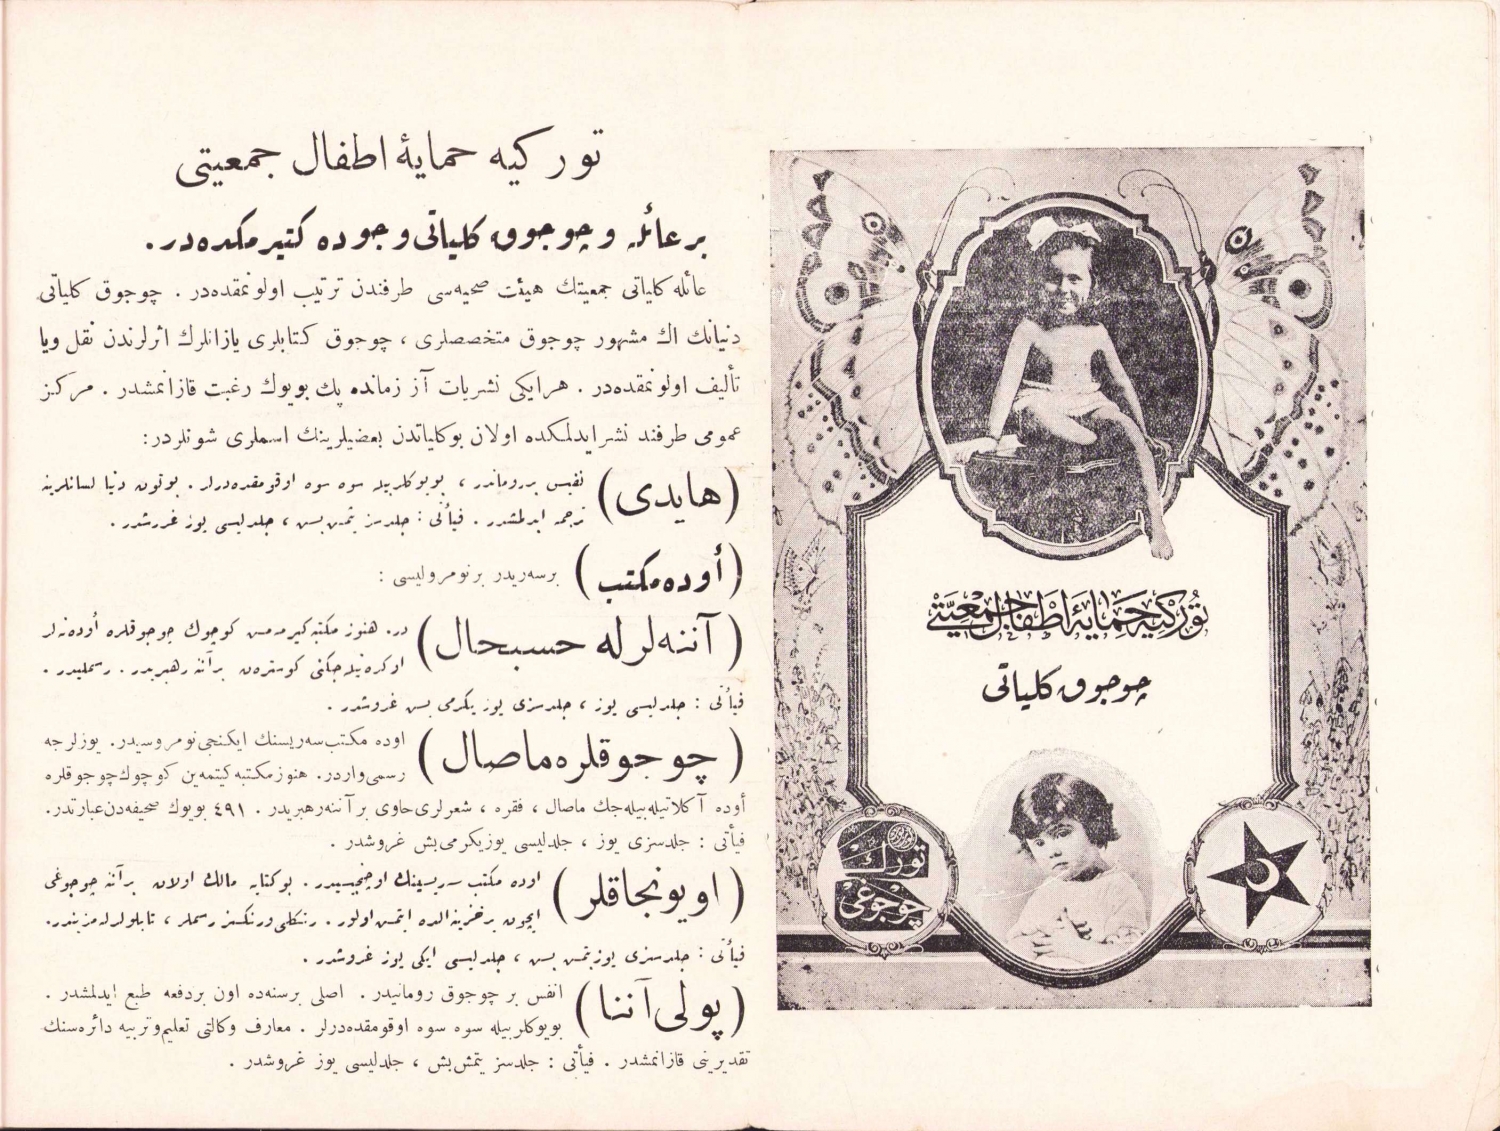 توركيه حمايهٔ اطفال جمعيتى
بر عائله و چوجوق كلياتى وجوده كتيرمكده‌در.
عائله كلياتى جمعيتك هيئت صحيه‌سى طرفندن ترتيب اولونمقده‌در . چوجوق كلياتى
دنيانك اك مشهور چوجوق متخصصلرى ، چوجوق كتابلرى يازانلرك اثرلرندن نقل ويا
تأليف اولونمقده‌در . هرايكى نشريات آز زمانده پك بويوك رغبت قازانمشدر . مركز
عمومى طرفند نشرايدلمكده اولان بوكلياتدن بعضيلرينك اسملرى شونلردر:
(هايدى) نفيس برروماندر ، بويوكلربيله سوه سوه اوقومقده‌درلر . بوتون دنيا لسانلرينه
ترجمه ايدلمشدر . فيأتى : جلدسز يتمش بش ، جلدليسى يوز غروشدر .
(أوده‌مكتب) برسه‌ريدر برنومروليسى :
(آننه‌لرله حسبحال) در. هنوز مكتبه‌كيرمه‌مش كوچوك چوجوقلره أوده‌نه‌لر
اوكره‌تيله‌جكنى كوسترەن برآننه رهبريدر . رسمليدر .
فيأتى : جلدليسى يوز ، جلدسزى يوز يكرمى بش غروشدر .
(چوجوقلره‌ماصال) اوده مكتب‌سه‌ريسنك ايكنجى‌نومروسيدر. يوزلرجه
رسمى‌واردر. هنوزمكتبه‌كيتمه‌ين كوچوك‌چوجوقلره
أوده آكلاتيله‌بيله‌جك ماصال ، فقره ، شعرلرى‌حاوى برآننه‌رهبريدر . ٤٩١ بويوك صحيفه‌دن‌عبارتدر.
فيأتى : جلدسزى يوز ، جلدليسى يوزيكرمى‌بش غروشدر .
(اويونجاقلر) اوده مكتب سه‌ريسينك اوچنجيسيدر. بوكتابه مالك اولان برآننه چوجوغى
ايچون برخزينه‌الده ايتمش‌اولور. رنكلى‌ورنكسز رسملر ، تابلولرله‌مزيندر.
فيأتى : جلدسزى يوزيتمش بش ، جلدليسى ايكى يوز غروشدر .
(پولى‌آننا) انفس بر چوجوق رومانيدر . اصلى برسنه‌ده اون بردفعه طبع ايدلمشدر .
بويوكلربيله سوه سوه اوقومقده‌درلر . معارف وكالتى تعليم‌وتربيه دائره‌سنك
تقديرينى قازانمشدر . فيأتى : جلدسز يتمش‌بش ، جلدليسى يوز غروشدر .
توركيه حمايهٔ اطفال جمعيتى
چوجوق كلياتى
تورك
چوجوغى